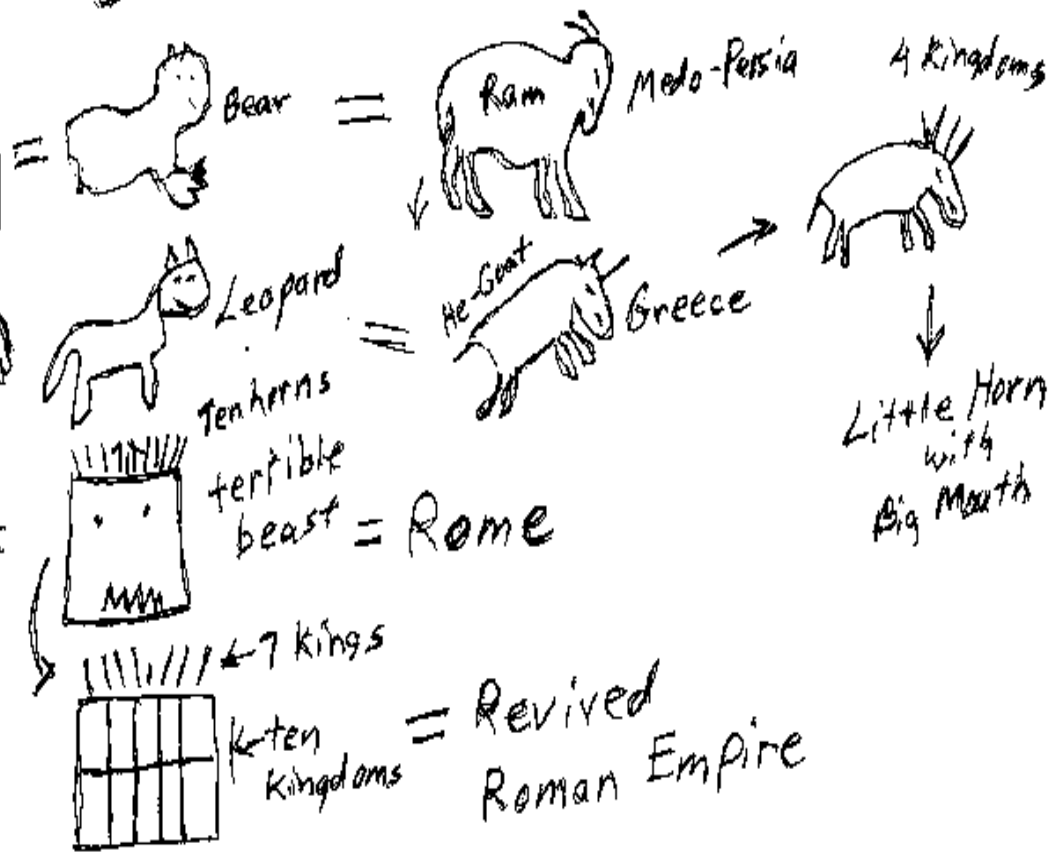 Bear
=
Ram
Medo-Persia
4 Kingdoms
Leopard
=
He-Goat
Greece
Little Horn
with
Big Mouth
Ten horns
terrible
beast = Rome
7 Kings
ten
Kingdoms
= Revived
Roman Empire